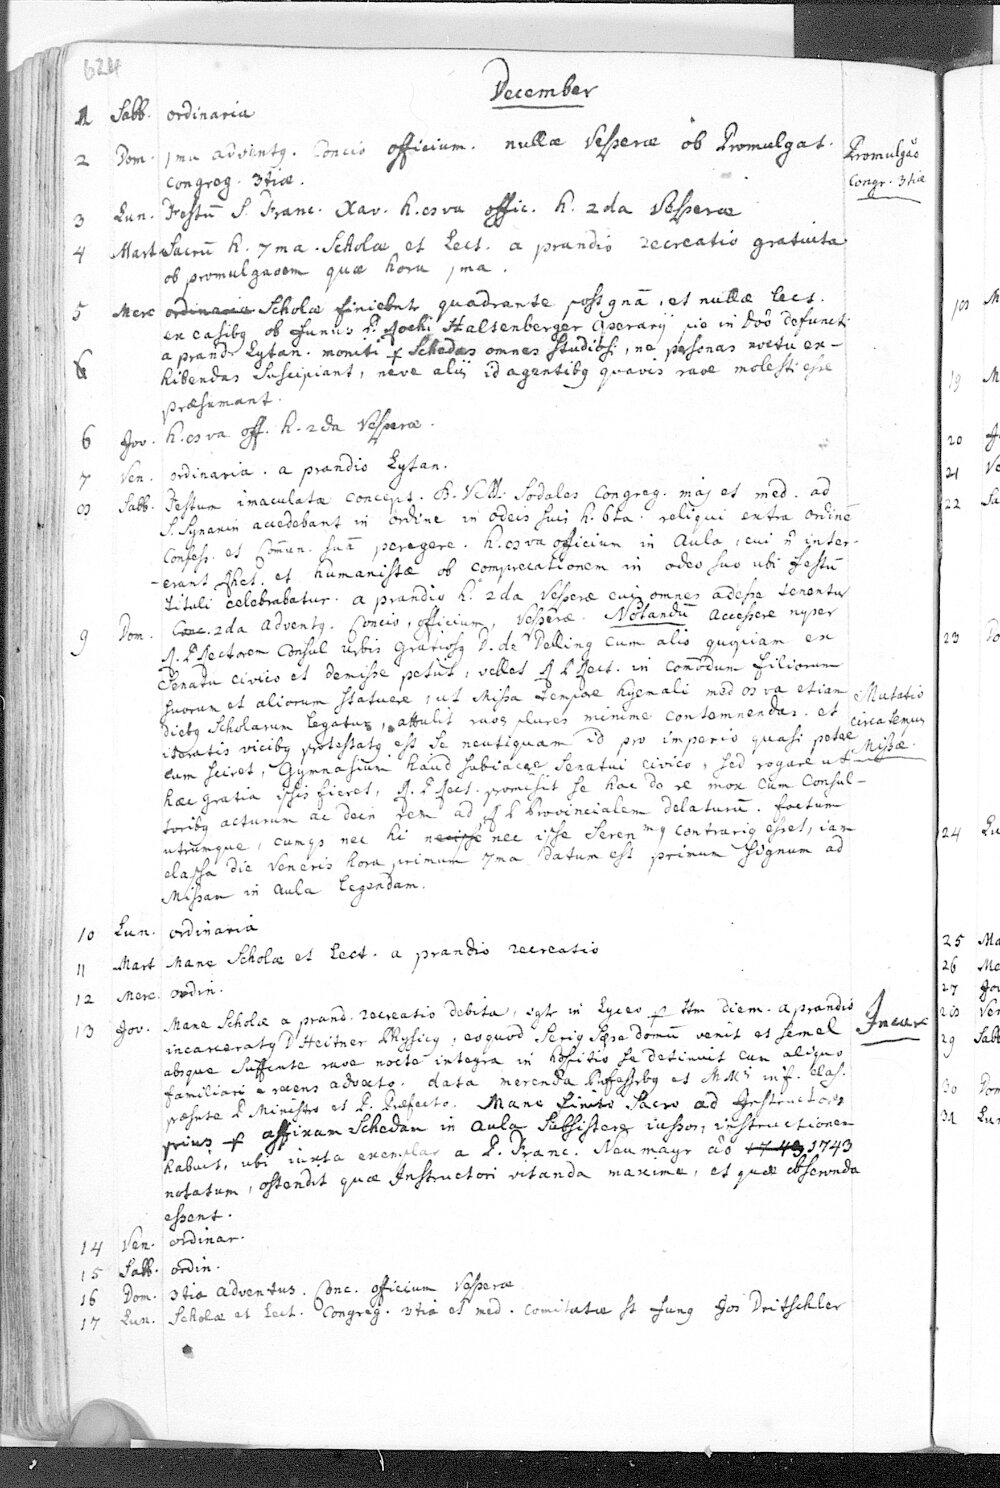 624
December
1 Sabb. ordinaria
2 Dom. 1ma adventq. Concio officium. nullæ Vesperæ ob Promulgat.
Congreg. 3tiæ.
Promulgao
Congr. 3tiæ
3 Lun. Festu S. Franc. Xav. h. 8va offic. h. 2da Vesperæ
4 Mart Sacru h. 7ma. Scholæ et Lect. a prandio recreatio gratuita
ob promulgaoem quæ hora 1ma.
5 Merc ordinarie Scholæ finiebntr quadrante post gna, et nullæ lect.
ex casibq ob funus P. Jochi Halsenberger Operarij pie in Dno defuncti
a prand. Lytan. moniti p Schedas omnes studiosi, ne personas noctu ex-
6 hibendas suscipiant, neve alijs id agentibq quavis raoe molesti esse
præsumant.
6 Jov. h. 8va off. h. 2da Vesperæ.
7 Ven. ordinaria. a prandio Lytan.
8 Sabb. Festum imaculatæ concept. B. V. M. Sodales Congreg. maj et med. ad
S. Synaxin accedebant in ordine in odeis suis h. 6ta. reliqui extra ordine
Confess. et Comun. sua peregere. h. 8va officium in Aula, cui n inter-
erant Rhet. et humanistæ ob comprecationem in odeo suo ubi Festu
tituli celebrabatur. a prandio h. 2da Vesperæ cui omnes adesse tenentur
9 Dom. Conc. 2da adventq. Concio, officium, Vesperæ. Notandu accessere nuper
R. P. Rectorem Consul urbis Gratiosq D. de Delling cum alio quopiam ex
Senatu civico et demisse petijt, vellet R P Rect. in comodum filiorum
suorum et aliorum statuere, ut Missa tempore hyemali med 8va etiam
diebq Scholarum legatur, attulit raoes plures minime contemnendas. et
iteratis vicibq protestatq est se neutiquam id pro imperio quasi petere
cum sciret, Gymnasium haud subiacere Senatui civico, sed rogare ut
hæc gratia ipsis fieret, R. P. Rect. promisit se hac de re mox cum Consul-
toribq acturum ac dein rem ad R P Provincialem delaturu. factum
utrumque, cumq nec hi necisse nec ipse Serenmq contrariq esset, iam
elapsa die Veneris hora primum 7ma datum est primum signum ad
Missam in aula legendam.
Mutatio
circa tempus
Missæ.
10 Lun. ordinaria
11 Mart Mane Scholæ et Lect. a prandio recreatio
12 Merc. ordin.
13 Jov. Mane Scholæ a prand. recreatio debita, in Lyceo p diem. a prandio
incarceratq D Heitner Physicq, eoquod seriq sæpe domu venit et semel
absque sufficnte raoe nocte integra in hospitio se detinuit cum aliquo
familiari e recens advecto. data merenda Professrbq et MMis inf. clas.
præsnte P. Ministro et P. Præfecto. Mane finito Sacro ad Instructores
prius p affixam Schedam in Aula subsistere iussos, instructionem
habuit, ubi iuxta exemplar a P. Franc. Neumayr ao 1743 1743
notatum, ostendit quæ Instructori vitanda maxime, et quæ observnda
essent.
Incarc
14 Ven. ordinar.
15 Sabb. ordin.
16 Dom. 3tia adventus. Conc. officium Vesperæ
17 Lun. Scholæ et Lect. Congreg. 3tiæ et med. comitatæ st funq Jos Dritschler